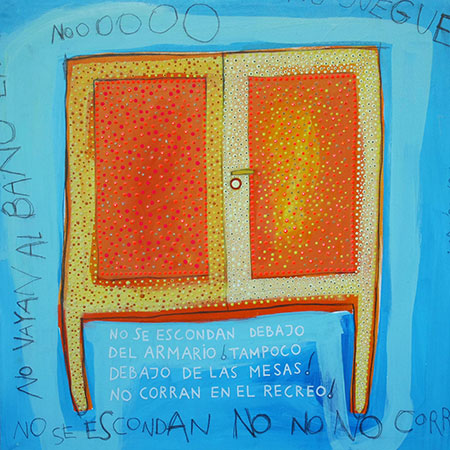 NOOOOOO
JUEGUE
NO VAYAN AL BAÑO
NO SE ESCONDAN DEBAJO
DEL ARMARIO! TAMPOCO
DEBAJO DE LAS MESAS!
NO CORRAN EN EL RECREO!
NO SE ESCONDAN NO NO NO CORR